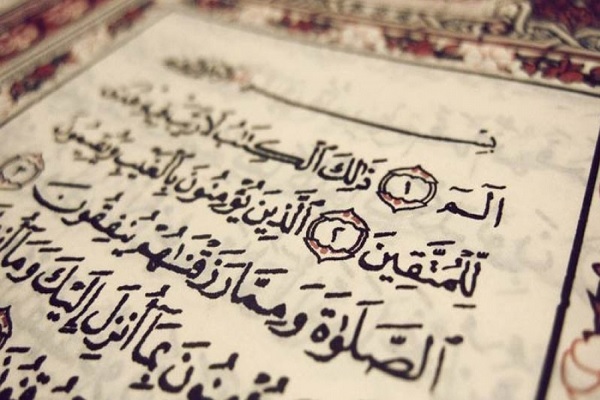 بِسْمِ
الٓمٓ ١ ذَٰلِكَ ٱلْكِتَٰبُ لَا رَيْبَ فِيهِ هُدًى
لِّلْمُتَّقِينَ ٢ ٱلَّذِينَ يُؤْمِنُونَ بِٱلْغَيْبِ وَيُقِيمُونَ
ٱلصَّلَوٰةَ وَمِمَّا رَزَقْنَٰهُمْ يُنفِقُونَ ٣
يُؤْمِنُونَ بِمَآ أُنزِلَ إِلَيْكَ وَمَآ